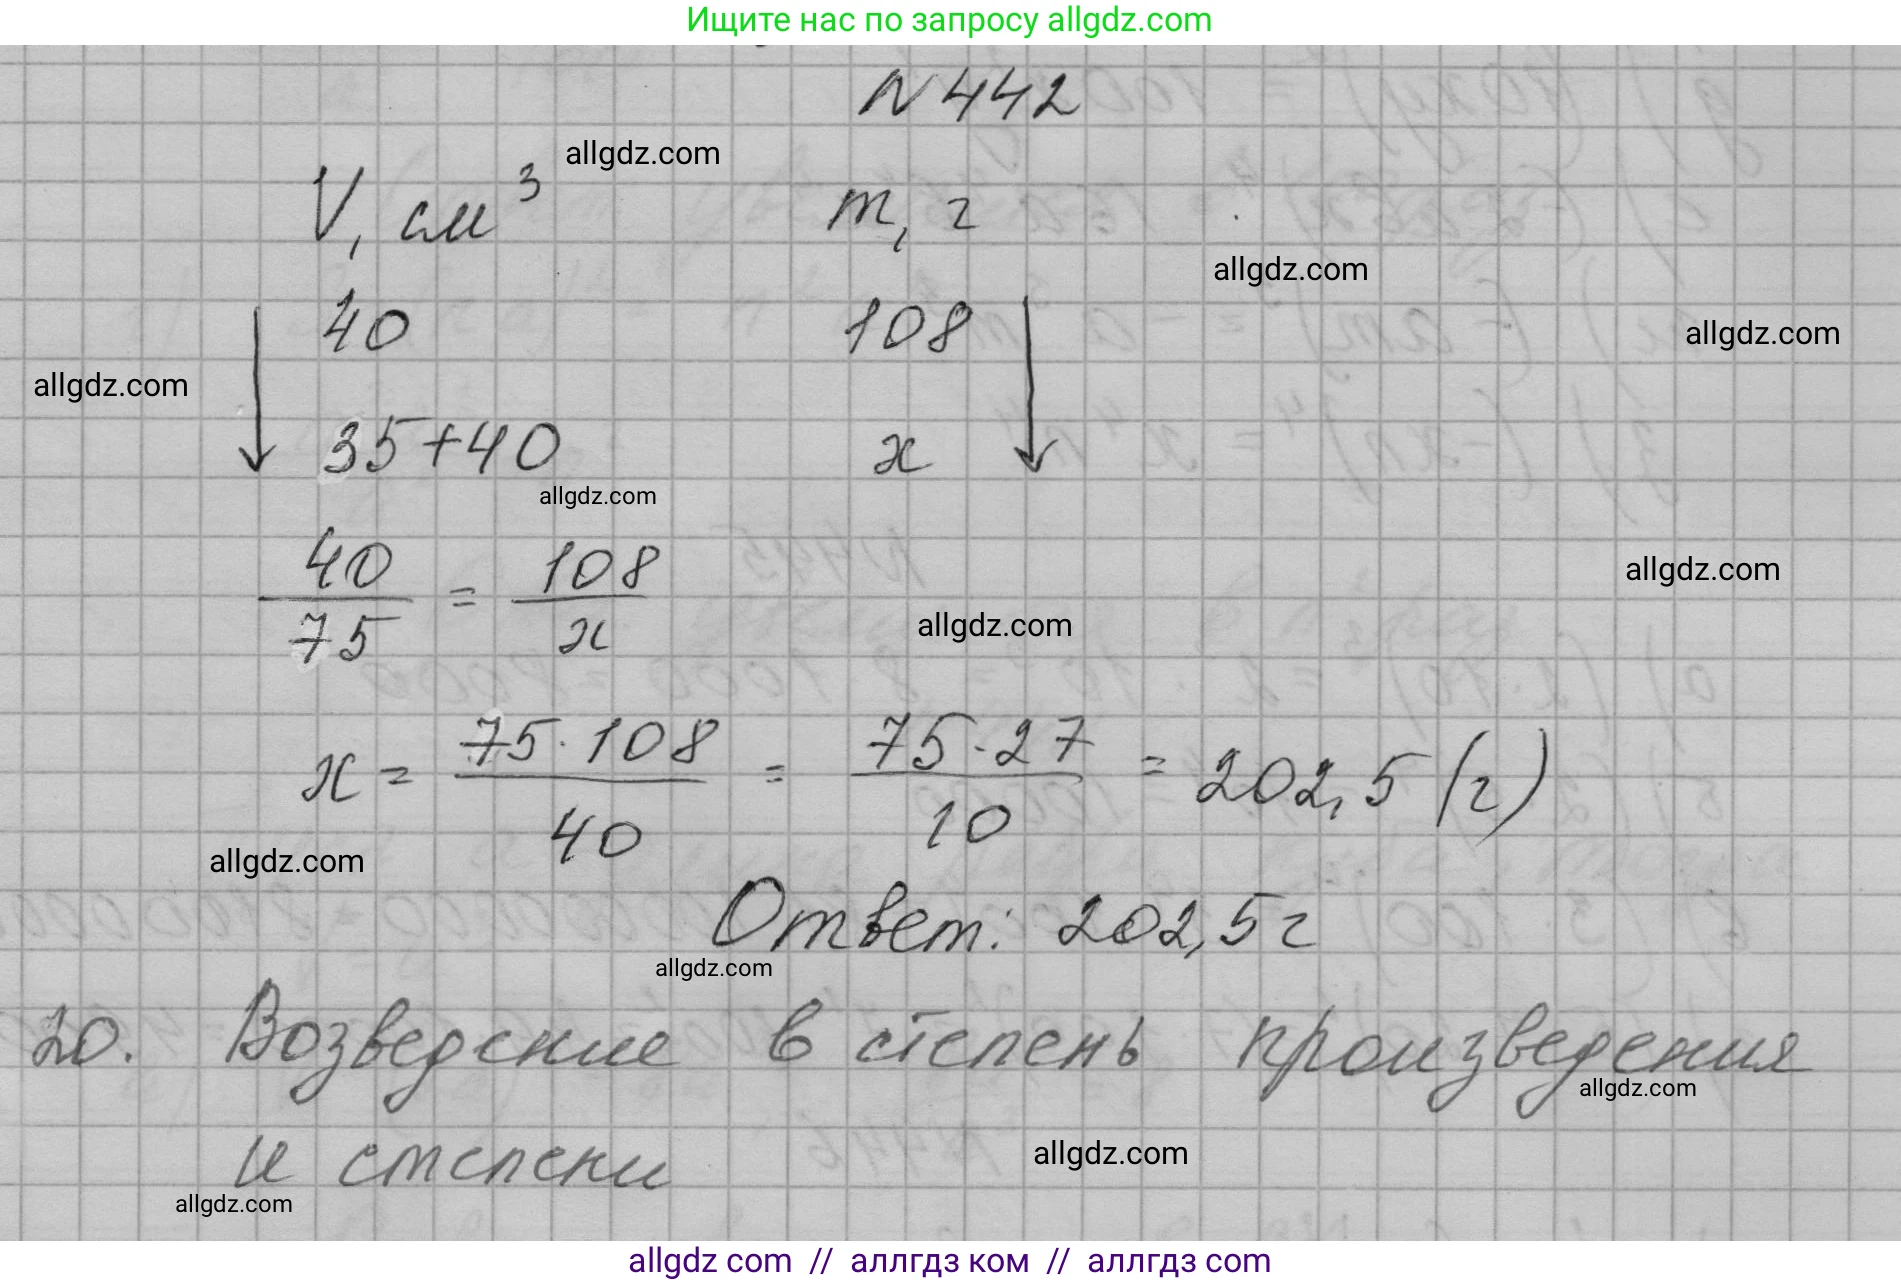 Ищите нас по запросу allgdz.com
N 442
allgdz.com
V, см³ m, г
allgdz.com
40 108
allgdz.com
allgdz.com
35+40 x
allgdz.com
40/75 = 108/x
allgdz.com
allgdz.com
x = 75·108/40 = 75·27/10 = 202,5 (г)
allgdz.com
Ответ: 202,5 г
allgdz.com
20. Возведение в степень произведения
allgdz.com
и степени
allgdz.com
allgdz.com
allgdz com // аллгдз ком // аллгдз com